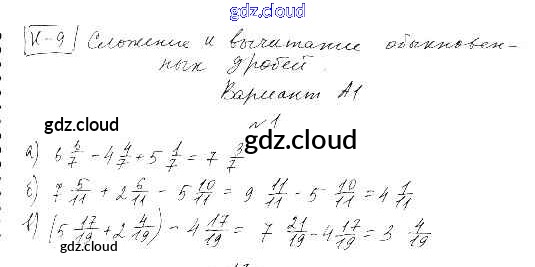 gdz.cloud
К-9 Сложение и вычитание обыкновен-
ных дробей.
Вариант А1
№1
gdz.cloud gdz.cloud
а) 6 6/7 - 4 4/7 + 5 1/7 = 7 3/7
б) 7 5/11 + 2 6/11 - 5 10/11 = 9 11/11 - 5 10/11 = 4 1/11
в) (5 17/19 + 2 4/19) - 4 17/19 = 7 21/19 - 4 17/19 = 3 4/19
gdz.cloud